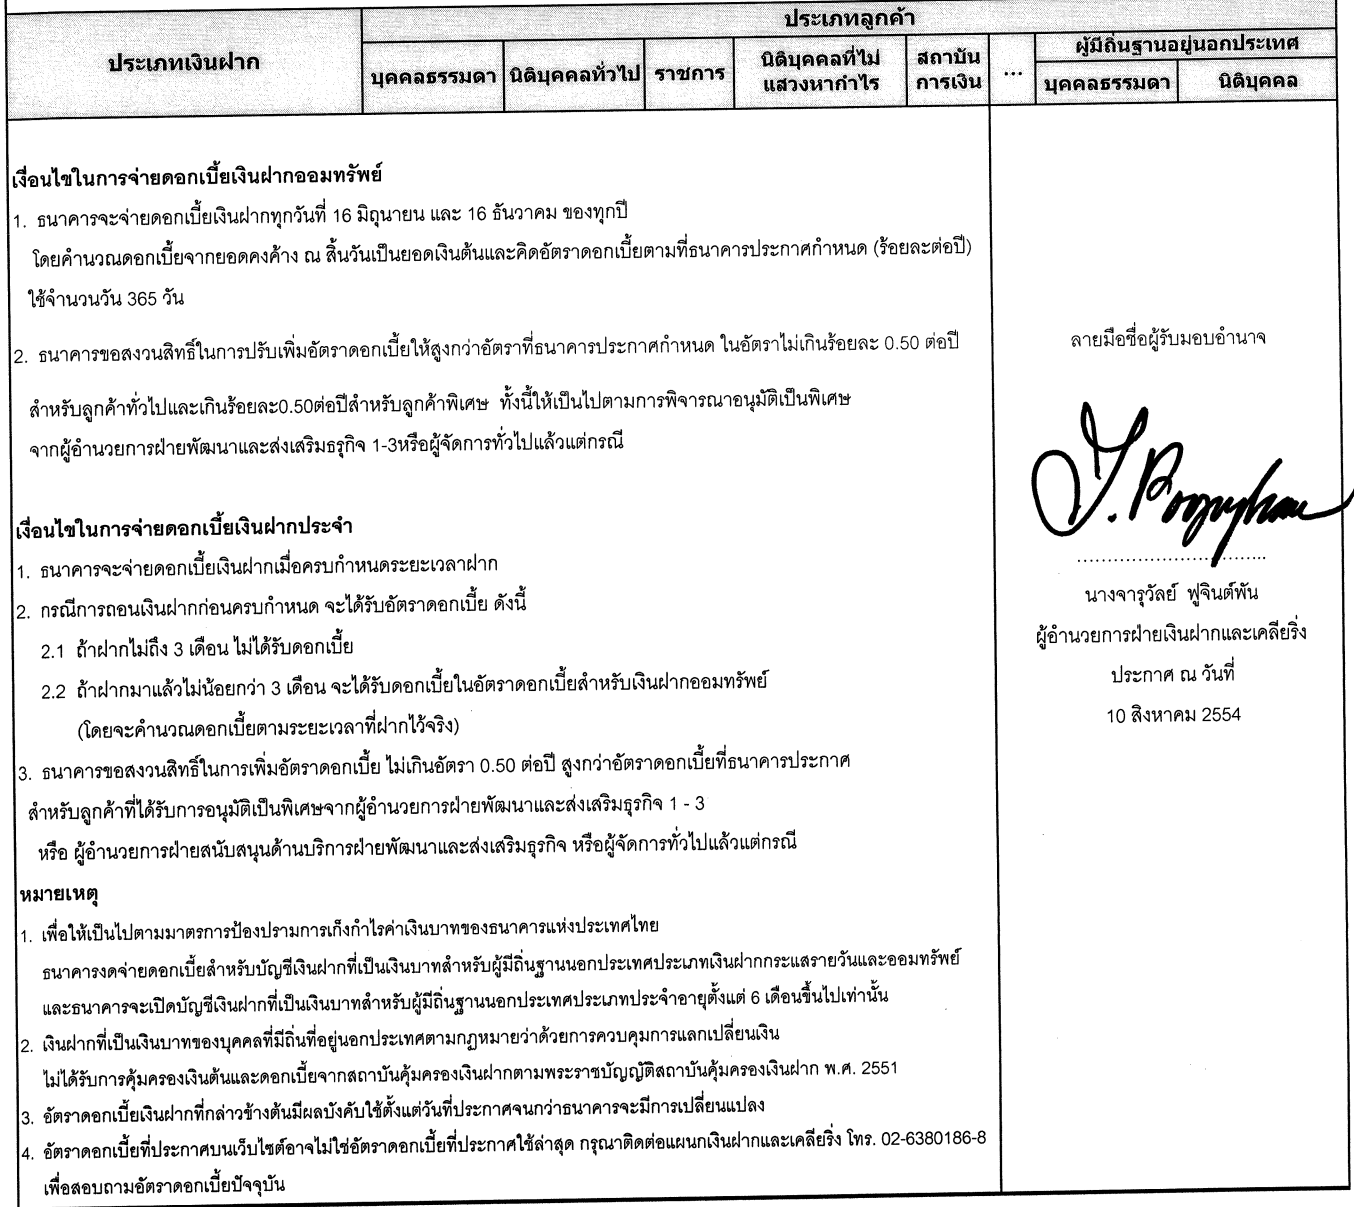 ประเภทเงินฝาก
ประเภทลูกค้า
บุคคลธรรมดา
นิติบุคคลทั่วไป
ราชการ
นิติบุคคลที่ไม่
แสวงหากำไร
สถาบัน
การเงิน
...
ผู้มีถิ่นฐานอยู่นอกประเทศ
บุคคลธรรมดา
นิติบุคคล
เงื่อนไขในการจ่ายดอกเบี้ยเงินฝากออมทรัพย์
1. ธนาคารจะจ่ายดอกเบี้ยเงินฝากทุกวันที่ 16 มิถุนายน และ 16 ธันวาคม ของทุกปี
โดยคำนวณดอกเบี้ยจากยอดคงค้าง ณ สิ้นวันเป็นยอดเงินต้นและคิดอัตราดอกเบี้ยตามที่ธนาคารประกาศกำหนด (ร้อยละต่อปี)
ใช้จำนวนวัน 365 วัน
2. ธนาคารขอสงวนสิทธิ์ในการปรับเพิ่มอัตราดอกเบี้ยให้สูงกว่าอัตราที่ธนาคารประกาศกำหนด ในอัตราไม่เกินร้อยละ 0.50 ต่อปี
สำหรับลูกค้าทั่วไปและเกินร้อยละ0.50ต่อปีสำหรับลูกค้าพิเศษ ทั้งนี้ให้เป็นไปตามการพิจารณาอนุมัติเป็นพิเศษ
จากผู้อำนวยการฝ่ายพัฒนาและส่งเสริมธรุกิจ 1-3หรือผู้จัดการทั่วไปแล้วแต่กรณี
เงื่อนไขในการจ่ายดอกเบี้ยเงินฝากประจำ
1. ธนาคารจะจ่ายดอกเบี้ยเงินฝากเมื่อครบกำหนดระยะเวลาฝาก
2. กรณีการถอนเงินฝากก่อนครบกำหนด จะได้รับอัตราดอกเบี้ย ดังนี้
2.1 ถ้าฝากไม่ถึง 3 เดือน ไม่ได้รับดอกเบี้ย
2.2 ถ้าฝากมาแล้วไม่น้อยกว่า 3 เดือน จะได้รับดอกเบี้ยในอัตราดอกเบี้ยสำหรับเงินฝากออมทรัพย์
(โดยจะคำนวณดอกเบี้ยตามระยะเวลาที่ฝากไว้จริง)
3. ธนาคารขอสงวนสิทธิ์ในการเพิ่มอัตราดอกเบี้ย ไม่เกินอัตรา 0.50 ต่อปี สูงกว่าอัตราดอกเบี้ยที่ธนาคารประกาศ
สำหรับลูกค้าที่ได้รับการอนุมัติเป็นพิเศษจากผู้อำนวยการฝ่ายพัฒนาและส่งเสริมธุรกิจ 1 - 3
หรือ ผู้อำนวยการฝ่ายสนับสนุนด้านบริการฝ่ายพัฒนาและส่งเสริมธุรกิจ หรือผู้จัดการทั่วไปแล้วแต่กรณี
หมายเหตุ
1. เพื่อให้เป็นไปตามมาตรการป้องปรามการเก็งกำไรค่าเงินบาทของธนาคารแห่งประเทศไทย
ธนาคารงดจ่ายดอกเบี้ยสำหรับบัญชีเงินฝากที่เป็นเงินบาทสำหรับผู้มีถิ่นฐานนอกประเทศประเภทเงินฝากกระแสรายวันและออมทรัพย์
และธนาคารจะเปิดบัญชีเงินฝากที่เป็นเงินบาทสำหรับผู้มีถิ่นฐานนอกประเทศประเภทประจำอายุตั้งแต่ 6 เดือนขึ้นไปเท่านั้น
2. เงินฝากที่เป็นเงินบาทของบุคคลที่มีถิ่นที่อยู่นอกประเทศตามกฎหมายว่าด้วยการควบคุมการแลกเปลี่ยนเงิน
ไม่ได้รับการคุ้มครองเงินต้นและดอกเบี้ยจากสถาบันคุ้มครองเงินฝากตามพระราชบัญญัติสถาบันคุ้มครองเงินฝาก พ.ศ. 2551
3. อัตราดอกเบี้ยเงินฝากที่กล่าวข้างต้นมีผลบังคับใช้ตั้งแต่วันที่ประกาศจนกว่าธนาคารจะมีการเปลี่ยนแปลง
4. อัตราดอกเบี้ยที่ประกาศบนเว็บไซต์อาจไม่ใช่อัตราดอกเบี้ยที่ประกาศใช้ล่าสุด กรุณาติดต่อแผนกเงินฝากและเคลียริ่ง โทร. 02-6380186-8
เพื่อสอบถามอัตราดอกเบี้ยปัจจุบัน
ลายมือชื่อผู้รับมอบอำนาจ
................................
นางจารุวัลย์ ฟูจินต์พัน
ผู้อำนวยการฝ่ายเงินฝากและเคลียริ่ง
ประกาศ ณ วันที่
10 สิงหาคม 2554